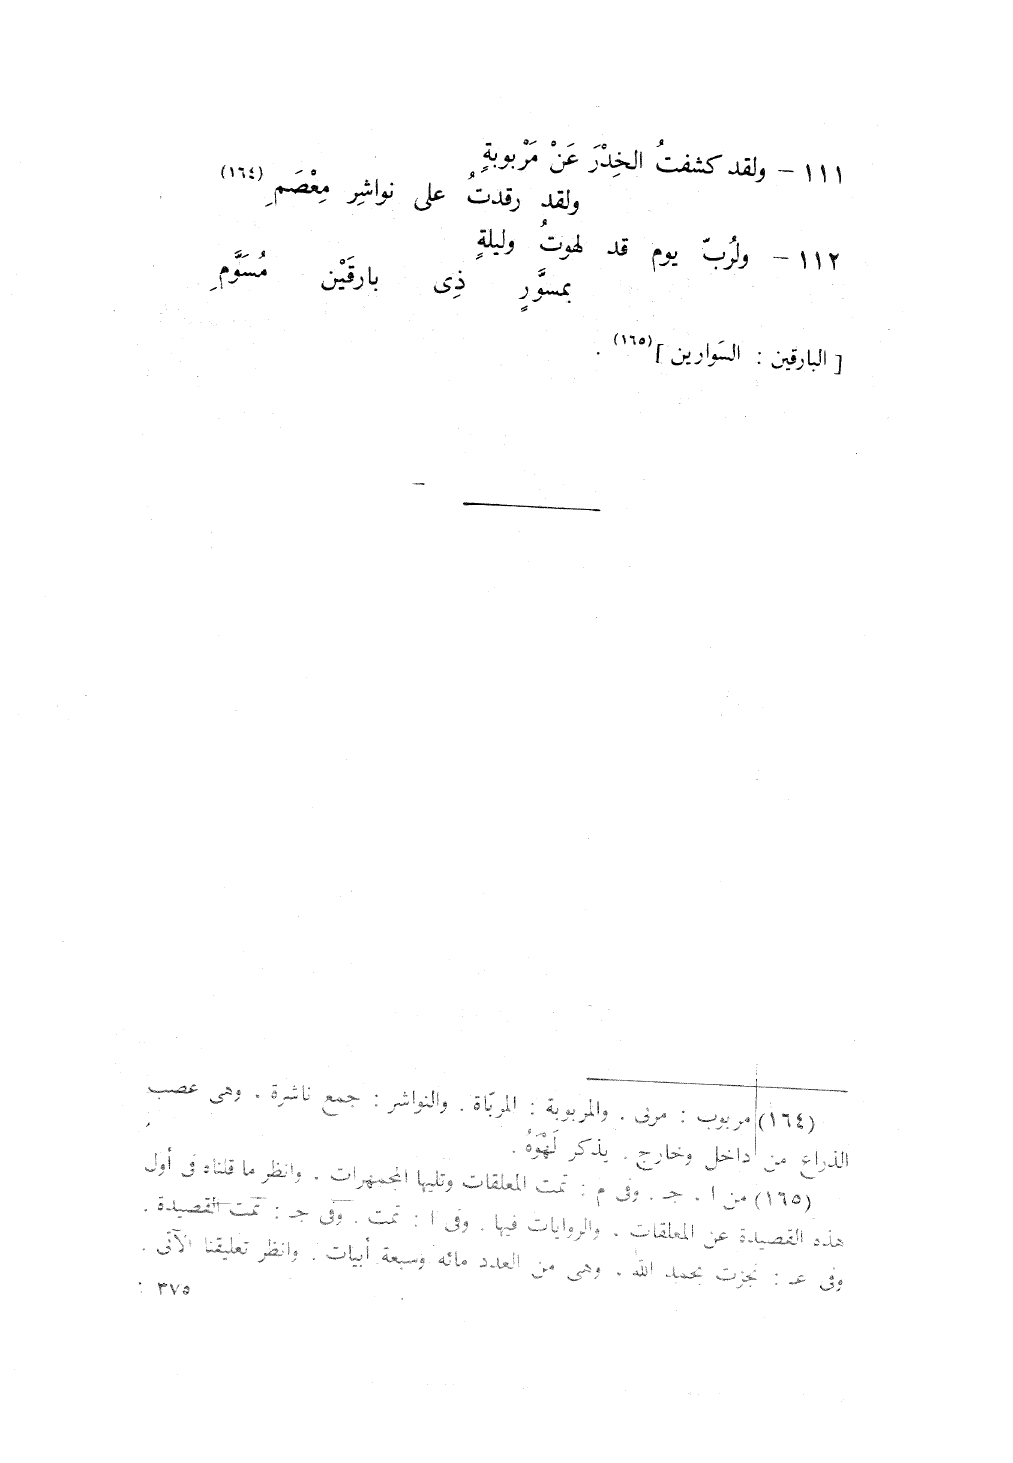 ١١١ – ولقد كشفتُ الخِدْرَ عَنْ مَرْبوبةٍ
ولقد رقدتُ على نواشِرِ مِعْصَمِ (١٦٤)
١١٢ – ولرُبّ يوم قد لهوتُ وليلةٍ
بمسوَّرٍ ذِى بارقَيْن مُسَوَّمِ
[ البارقين : السَوارين ] (١٦٥) .
(١٦٤) مربوب : مربى . والمربوبة : المربّاة . والنواشر : جمع ناشرة . وهى عصب
الذراع من داخل وخارج . يذكر لَهْوَهُ .
(١٦٥) من ا . جـ . وفى م : تمت المعلقات وتليها المجمهرات . وانظر ما قلناه فى أول
هذه القصيدة عن المعلقات . والروايات فيها . وفى ا : تمت . وفى جـ : تمت القصيدة .
وفى عـ : نجزت بحمد الله . وهى من العدد مائه وسبعة أبيات . وانظر تعليقنا الآتى .
٣٧٥ :